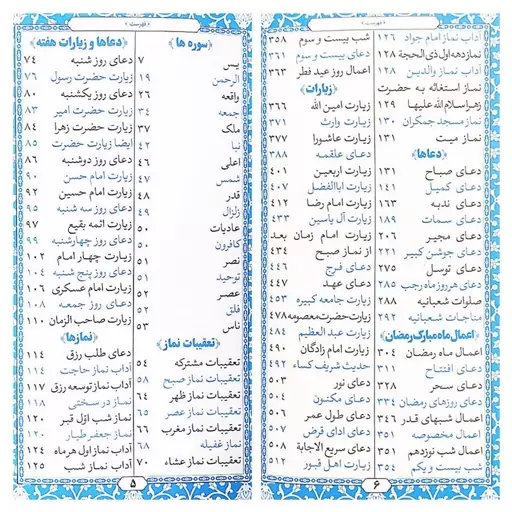 ﴿فهرست﴾
﴿سوره ها﴾
یس ۷
الرحمن ۱۹
واقعه ۲۶
جمعه ۳۴
ملک ۳۷
نبا ۴۲
اعلی ۴۶
شمس ۴۷
قدر ۴۸
زلزال ۴۹
عادیات ۵۰
کافرون ۵۰
نصر ۵۱
توحید ۵۱
عصر ۵۲
فلق ۵۲
ناس ۵۳
﴿تعقیبات نماز﴾
تعقیبات مشترکه ۵۴
تعقیبات نماز صبح ۵۸
تعقیبات نماز ظهر ۶۴
تعقیبات نماز عصر ۶۵
تعقیبات نماز مغرب ۶۶
نماز غفیله ۶۸
تعقیبات نماز عشاء ۷۰
﴿دعاها و زیارات هفته﴾
دعای روز شنبه ۷۴
زیارت حضرت رسول ۷۶
دعای روز یکشنبه ۸۰
زیارت حضرت امیر ۸۳
زیارت حضرت زهرا ۸۴
ایضا زیارت حضرت ۸۵
دعای روز دوشنبه ۸۶
زیارت امام حسن ۹۰
زیارت امام حسین ۹۲
دعای روز سه شنبه ۹۵
زیارت ائمه بقیع ۹۷
دعای روز چهارشنبه ۹۹
زیارت چهار امام ۱۰۲
دعای روز پنج شنبه ۱۰۴
زیارت امام عسکری ۱۰۶
دعای روز جمعه ۱۰۸
زیارت صاحب الزمان ۱۱۰
﴿نمازها﴾
دعای طلب رزق ۱۱۴
آداب نماز حاجت ۱۱۴
آداب نماز توسعه رزق ۱۱۷
نماز در سختی ۱۱۸
نماز شب اوّل قبر ۱۲۰
نماز جعفر طیار ۱۲۰
آداب نماز اول هرماه ۱۲۴
آداب نماز شب ۱۲۵
۵
﴿فهرست﴾
آداب نماز امام جواد ۱۲۶
نماز دهه اول ذی الحجة ۱۲۸
آداب نماز والدین ۱۲۸
نماز استغاثه به حضرت
زهرا سلام الله علیها ۱۲۹
نماز مسجد جمکران ۱۳۰
نماز میت ۱۳۱
﴿دعاها﴾
دعای صباح ۱۳۱
دعای کمیل ۱۴۱
دعای ندبه ۱۶۳
دعای سمات ۱۸۹
دعای مجیر ۲۰۶
دعای جوشن کبیر ۲۲۱
دعای توسل ۲۷۵
دعای هر روز ماه رجب ۲۸۵
صلوات شعبانیه ۲۸۸
مناجات شعبانیه ۲۹۲
﴿اعمال ماه مبارک رمضان﴾
اعمال ماه رمضان ۳۰۴
دعای افتتاح ۳۱۱
دعای سحر ۳۲۸
دعای روزهای رمضان ۳۳۴
اعمال شبهای قدر ۳۴۶
اعمال مخصوصه ۳۵۱
اعمال شب نوزدهم ۳۵۱
شب بیست و یکم ۳۵۴
شب بیست و سوم ۳۵۸
دعای بیست و سوم ۳۶۱
اعمال روز عید فطر ۳۶۳
﴿زیارات﴾
زیارت امین الله ۳۶۶
زیارت وارث ۳۷۱
زیارت عاشورا ۳۷۷
دعای علقمه ۳۸۸
زیارت اربعین ۴۰۱
زیارت اباالفضل ۴۰۷
زیارت امام رضا ۴۱۲
زیارت آل یاسین ۴۳۳
زیارت امام زمان بعد
از نماز صبح ۴۳۴
دعای فرج ۴۴۶
دعای عهد ۴۴۷
زیارت جامعه کبیره ۴۵۳
زیارت حضرت معصومه ۴۷۸
زیارت عبد العظیم ۴۸۴
زیارت امام زادگان ۴۹۰
حدیث شریف کساء ۴۹۲
دعای نور ۵۰۳
دعای مکنون ۵۰۴
دعای طول عمر ۵۰۶
دعای ادای قرض ۵۰۷
دعای سریع الاجابة ۵۰۸
زیارت اهل قبور ۵۱۲
۶